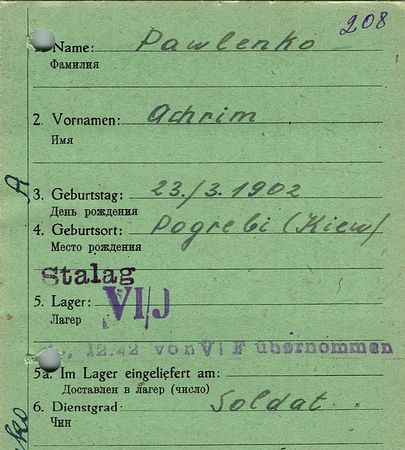 208
1. Name: Pawlenko
Фамилия
2. Vornamen: Achrim
Имя
3. Geburtstag: 23./3.1902
День рождения
4. Geburtsort: Pogrebi (Kiew)
Место рождения
Stalag
5. Lager: VI/J
Лагер
12.42 von VI F übernommen
5a. Im Lager eingeliefert am:
Доставлен в лагер (число)
6. Dienstgrad: Soldat
Чин